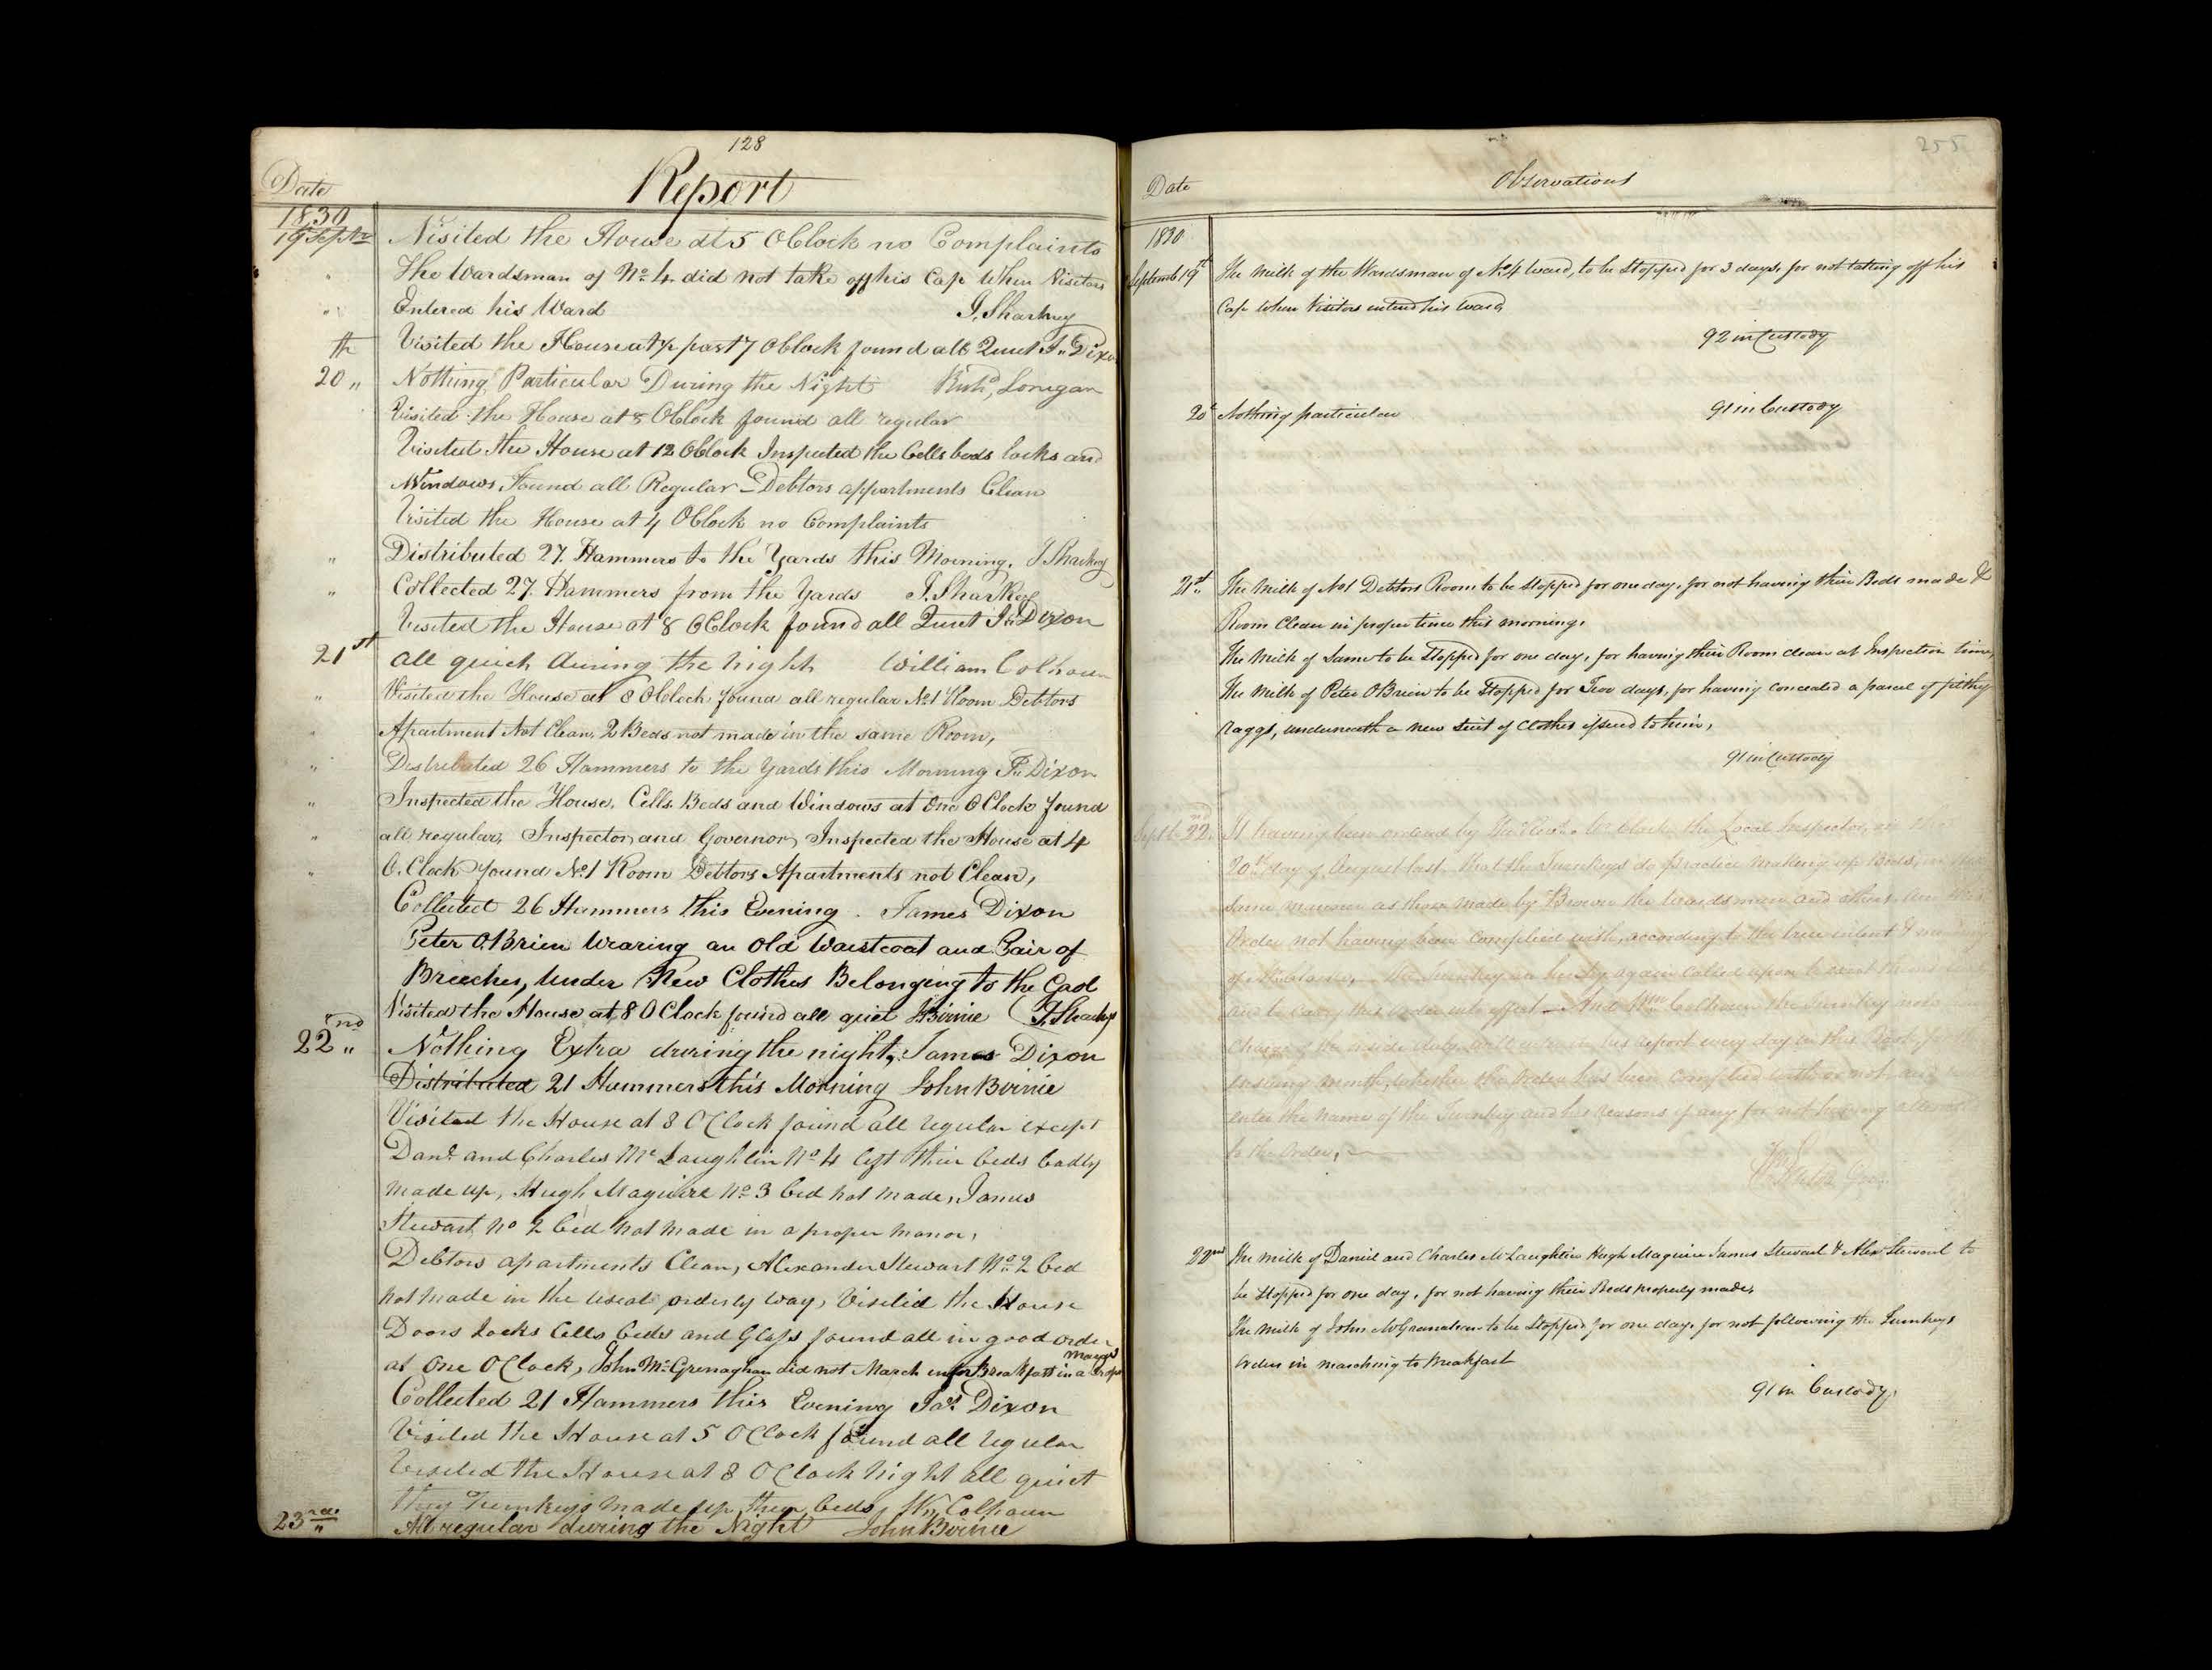 128
Date
Report
1830
19 Septr
Visited the House at 5 OClock no Complaints
The Wardsman of No 4 did not take off his Cap When Visitors
Entered his Ward J. Sharkey
Visited the House at ½ past 7 OClock found all Quiet Js Dixon
20th
Nothing Particular During the Night Richd Lonegan
Visited the House at 8 OClock found all regular
Visited the House at 12 OClock Inspected the Cells beds locks and
Windows Found all Regular – Debtors appartments Clean
Visited the House at 4 OClock no Complaints
Distributed 27 Hammers to the Yards this Morning. J. Sharkey
Collected 27 Hammers from the Yards J. Sharkey
Visited the House at 8 OClock found all Quiet Js Dixon
21st
all quiet during the night William Colhoun
Visited the House at 8 OClock found all regular No 1 Room Debtors
Apartment Not Clean, 2 Beds not made in the same Room,
Distributed 26 Hammers to the Yards this Morning Js Dixon
Inspected the House, Cells Beds and Windows at One OClock found
all regular, Inspector and Governor, Inspected the House at 4
O.Clock found No 1 Room Debtors Apartments not Clean,
Collected 26 Hammers this Evening. James Dixon
Peter O.Brien Wearing an Old Waistcoat and Pair of
Breeches, Under New Clothes Belonging to the Gaol
Visited the House at 8 OClock found all quiet J Birnie J. Sharkey
22nd
Nothing Extra during the night, James Dixon
Distributed 21 Hammers this Morning John Birnie
Visited the House at 8 OClock found all regular except
Danl and Charles McLaughlin No 4 left their beds badly
made up, Hugh Maguire No 3 bed not made, James
Stewart no 2 bed not made in a proper manor,
Debtors apartments Clean, Alexander Stewart No 2 bed
not made in the useal orderly way, Visited the House
Doors Locks Cells beds and Glass found all in good order
at One OClock, John McGrenaghan did not March in for Breakfast in a Proper
manr
Collected 21 Hammers this Evening Jas Dixon
Visited the House at 5 OClock found all regular
Visited the House at 8 OClock night all quiet
they Turnkeys made up their beds, Wm Colhoun
23rd
All regular during the Night John Birnie
255
Date
Observations
1830
Septemb 19th
The Milk of the Wardsman of No 4 Ward, to be Stopped for 3 days, for not taking off his
Cap when Visitors entered his Ward,
92 in Custody
20th
Nothing particular 91 in Custody
21st
The Milk of No 1 Debtors Room to be Stopped for one day, for not having their Beds made &
Room Clean in proper time this morning,
The Milk of Same to be Stopped for one day, for having their Room clean at Inspection time,
The Milk of Peter OBrien to be Stopped for Two days, for having concealed a parcel of filthy
raggs, underneath a new Suit of Clothes issued to him,
91 in Custody
Septr 22nd
It having been ordered by the Revd Mr Clarke the Local Inspector, on the
20th day of August last, that the Turnkeys do practice making up Beds, in the
Same manner as those made by Brown the wardsman and others, and this
Order not having been Complied with, according to the true intent & meaning
of Mr Clarke, the Turnkeys are hereby again Called upon to
and to carry this order into effect – And Wm Colhoun the Turnkey now in
Charge of the inside duty, will enter in his report every day in this Book for the
ensuing month, whether the Order has been complied with or not, and will
enter the name of the Turnkey and his reasons if any for not having attended
to the Order,
22nd
The Milk of Daniel and Charles McLaughlin Hugh Maguire James Stewart & Alexr Stewart to
be Stopped for one day, for not having their Beds properly made,
The Milk of John McGranahan to be Stopped for one day, for not following the Turnkeys
orders in marching to Breakfast
91 in Custody,